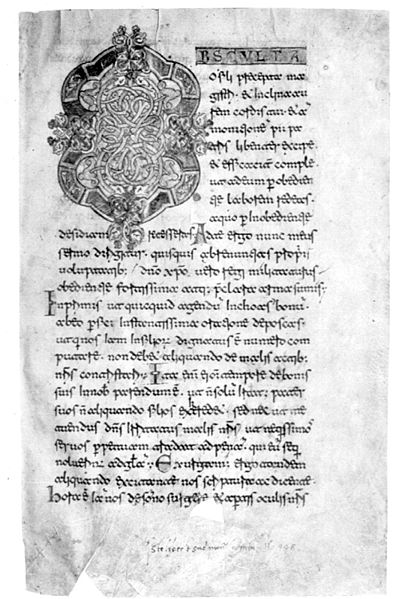 BSCULTA
O fili precepta ma
gistri. & inclina au
rem cordis tui. & ad
monitione pii pa
tris libenter excipe.
& efficaciter comple.
ut ad eum p obedien
tie laborem redeas.
a quo p inobedientie
desidiam recesseras. Ad te ergo nunc meus
sermo dirigitur. quisquis abrenuntias propriis
voluptatib; dno xpo. vero regi militaturus
obedientie fortissima atq; preclara arma sumis.
Inprimis ut quicquid agendu inchoas bonu.
ab eo pfici instantissima oratione deposcas.
ut qui nos iam in filior dignatus e numero com
putare. non debeat aliquando de malis actib;
nris contristari. Ita eni ei omi tempore de bonis
suis in nob parendum e. ut n solu iratus pater
suos n aliquando filios exheredet. sed nec ut me
tuendus dns irritatus malis nris ut nequissimos
servos perpetuam tradat ad penam. qui eu sequi
noluerint ad gla. Exurgam ergo tandem
aliquando excitante nos scriptura ac dicente.
Hora e iam nos de somno surgere. & apertis oculis nris